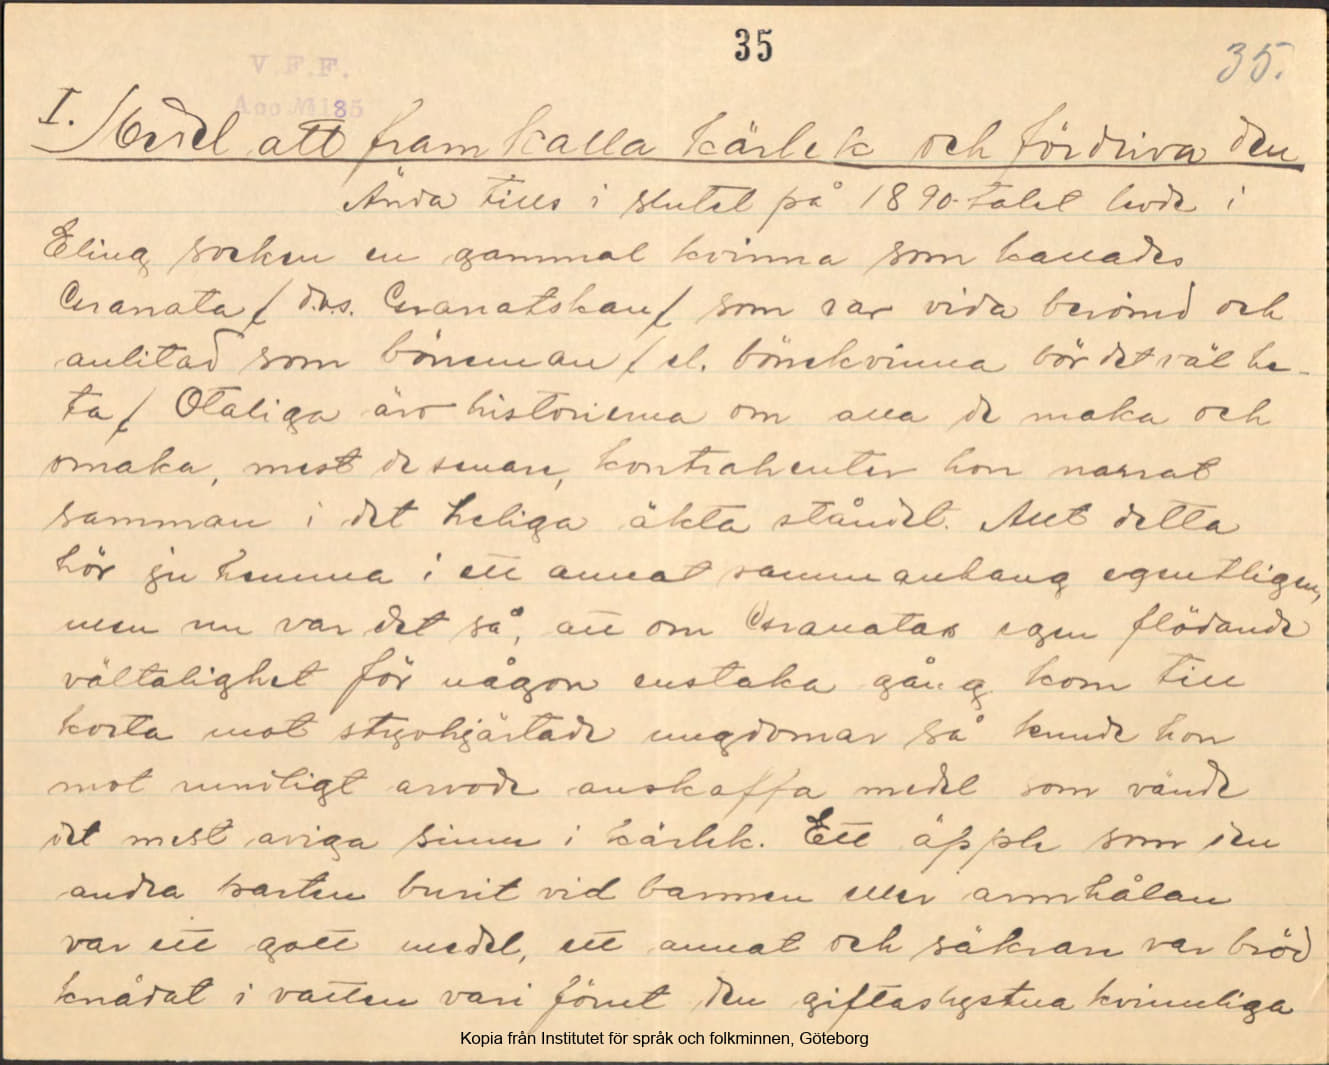 35
35.
V.F.F.
Acc. № 185
I. Medel att framkalla kärlek och fördriva den
Ända tills i slutet på 1890-talet levde i
Eling socken en gammal kvinna som kallades
Granata / d.v.s. Granatskan / som var vida berömd och
anlitad som böneman / el. bönekvinna bör det väl he-
ta / Otaliga äro historierna om alla de maka och
omaka, mest de senare, kontrahenter hon narrat
samman i det heliga äkta ståndet. Allt detta
hör ju hemma i ett annat sammanhang egentligen,
men nu var det så, att om Granatas egen flödande
vältalighet för någon enstaka gång kom till
korta mot styvhjärtade ungdomar så kunde hon
mot rundligt arvode anskaffa medel som vände
det mest aviga sinne i kärlek. Ett äpple som den
andra parten burit vid barmen eller armhålan
var ett gott medel, ett annat och säkrare var bröd
knådat i vatten vari förut den giftaslystna kvinnliga
Kopia från Institutet för språk och folkminnen, Göteborg